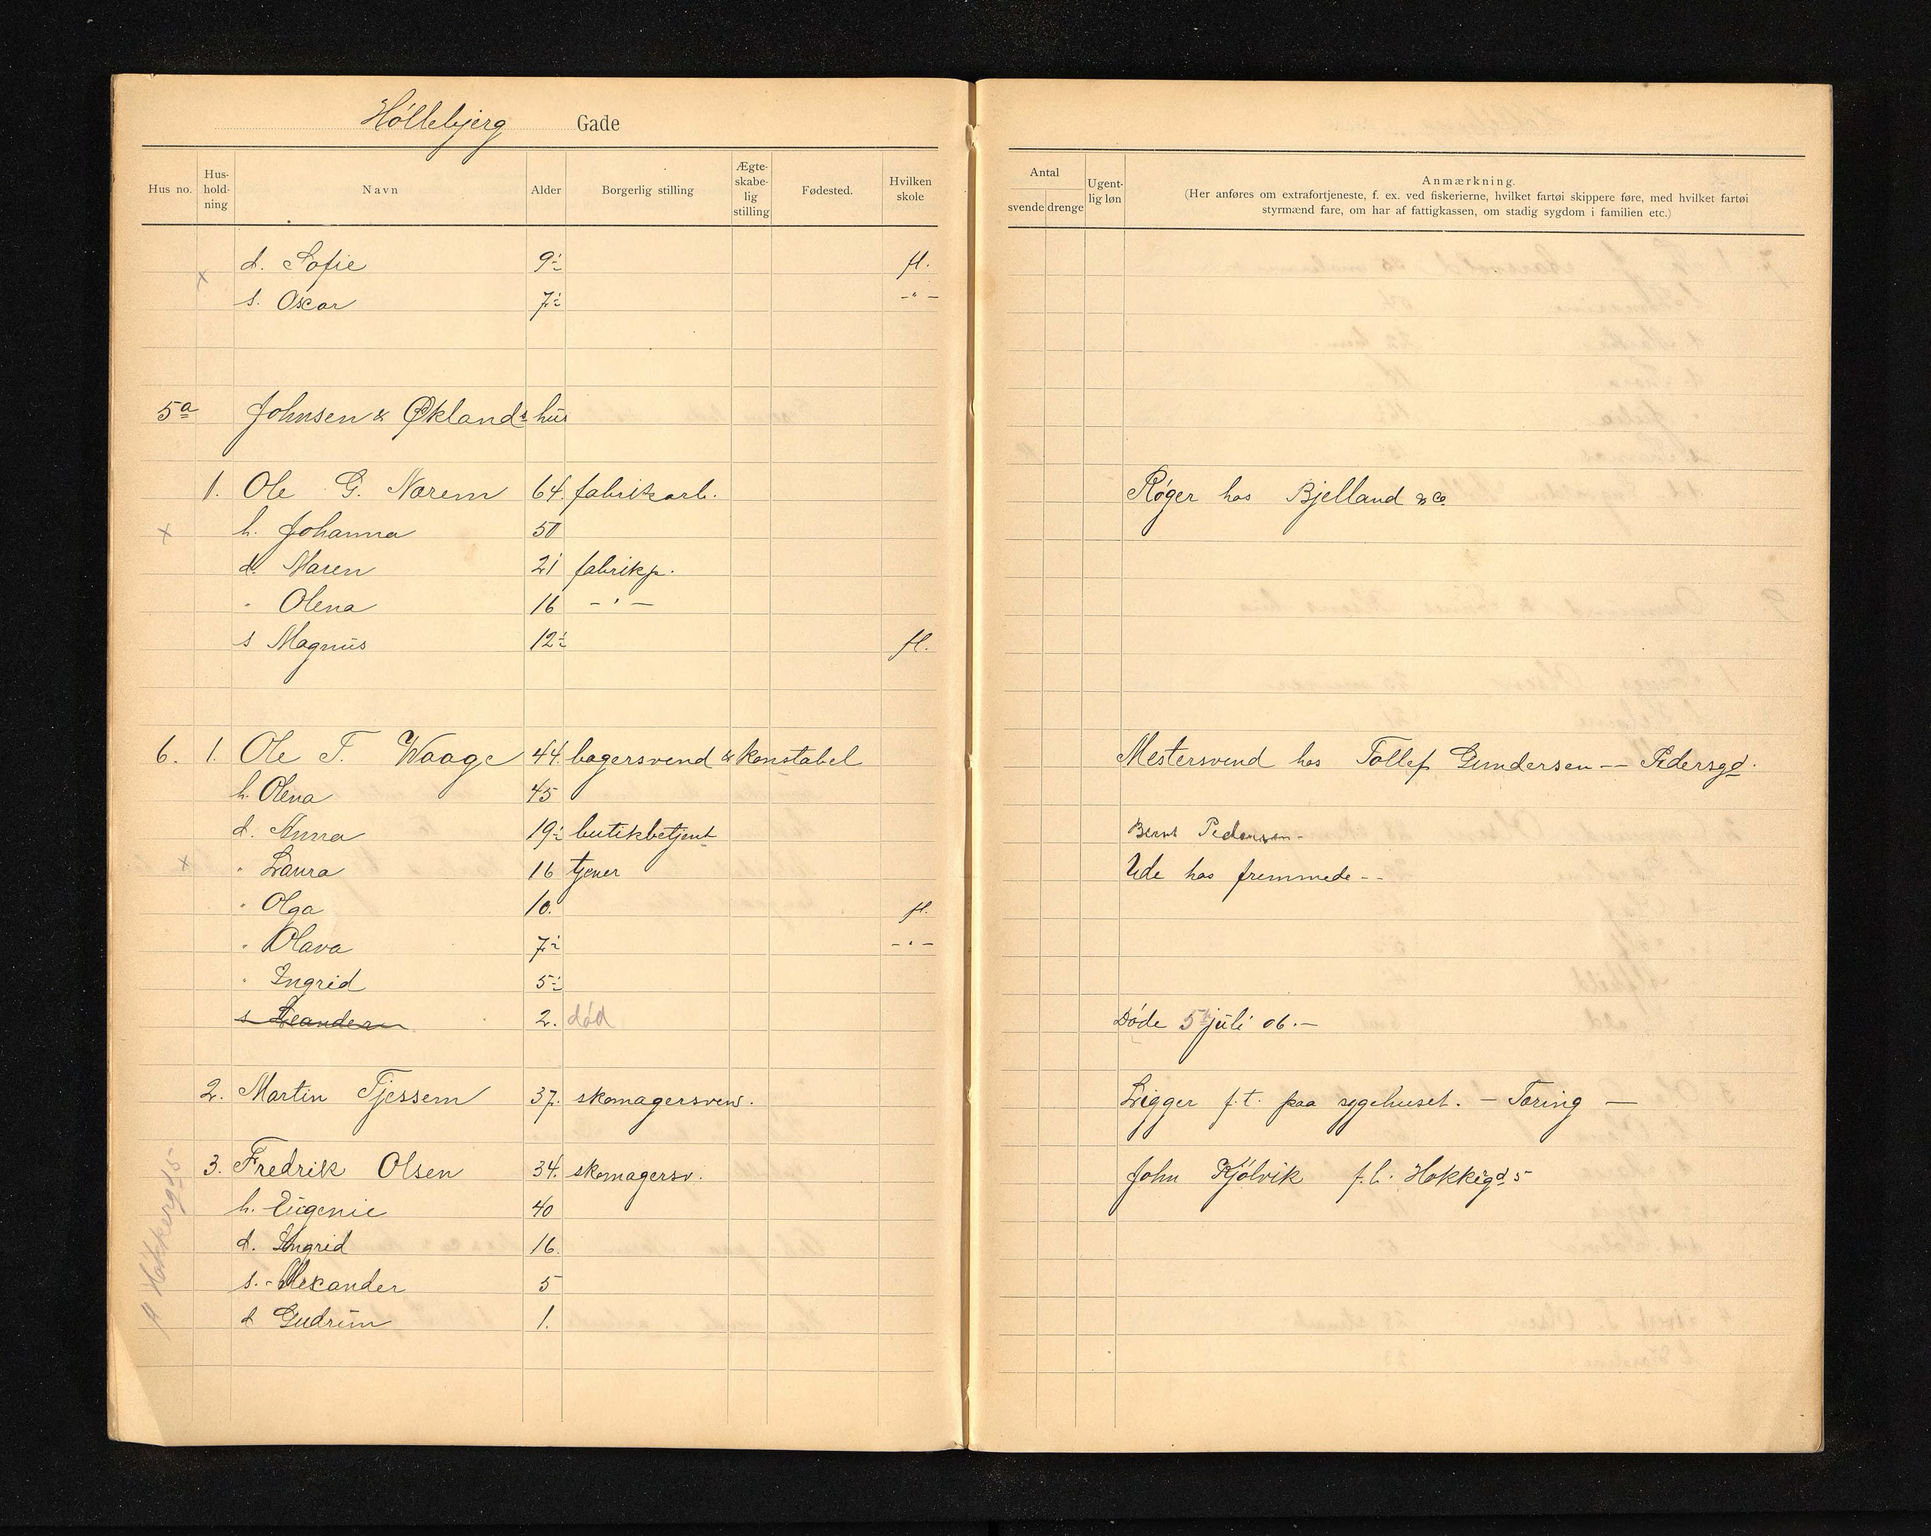 Höllebjerg Gade
Hus no. Hus-hold-ning Navn Alder Borgerlig stilling Ægte-skabe-lig stilling Fødested. Hvilken skole
d. Sofie 9½ fl.
s. Oscar 7½ -"-
5a Johnsen & Øklands hus
1. Ole G. Norem 64. fabrikarb.
h. Johanna 50
d. Maren 21 fabrikp.
" Olena 16 -"-
s Magnus 12½ fl.
6. 1. Ole T. Waage 44. bagersvend & konstabel
h. Olena 45
d. Anna 19½ butikbetjent
" Laura 16 tjener
" Olga 10. fl.
" Olava 7½ -"-
" Ingrid 5½
s Leander 2. död
2. Martin Tjessem 37. skomagersven.
3. Fredrik Olsen 34. skomagersv.
h. Eugenie 40
d. Ingrid 16.
s. Alexander 5
d Gudrun 1.
Antal svende drenge Ugent-lig løn Anmærkning.
(Her anføres om extrafortjeneste, f. ex. ved fiskerierne, hvilket fartøi skippere føre, med hvilket fartøi
styrmænd fare, om har af fattigkassen, om stadig sygdom i familien etc.)
Røger hos Bjelland & Co.
Mestersvend hos Tollef Gundersen — Pedersgd.
Bernt Pedersen -
Ude hos fremmede --
Döde 5te juli 06. —
Ligger f.t. paa sygehuset. — Tæring —
John Kjölvik f.l. Hokkigd 5